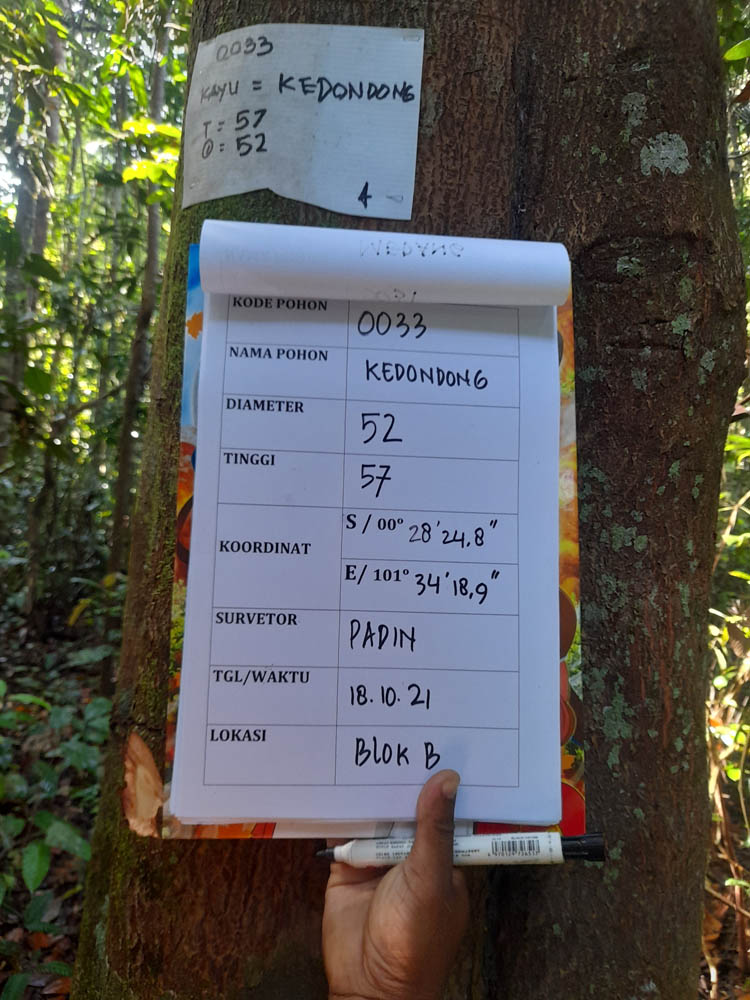 0033
KAYU = KEDONDONG
T = 57
Ø = 52
A
MEDANG
KODE POHON 0033
NAMA POHON KEDONDONG
DIAMETER 52
TINGGI 57
KOORDINAT
S / 00° 28' 24.8"
E/ 101° 34' 18,9"
SURVETOR PADIN
TGL/WAKTU 18.10.21
LOKASI BLOK B